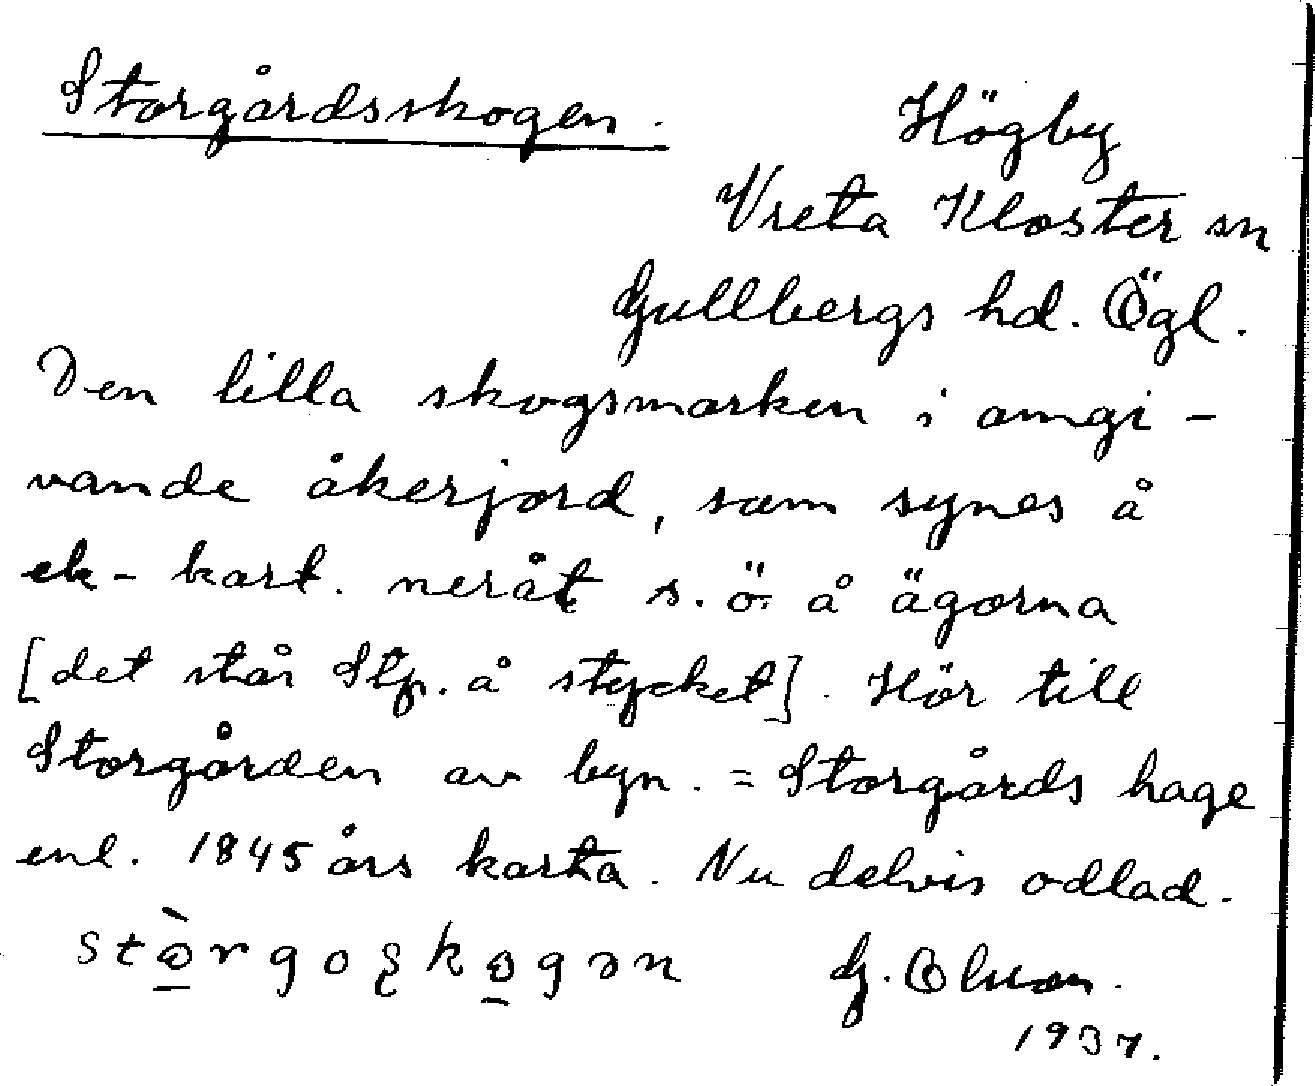 Storgårdsskogen.
Högby
Vreta Kloster sn
Gullbergs hd. Ögl.
Den lilla skogsmarken i omgi-
vande åkerjord, som synes å
ek-kart. neråt s.ö. å ägorna
[det står Stp. å stycket]. Hör till
Storgården av byn. = Storgårds hage
enl. 1845 års karta. Nu delvis odlad.
G. Olson.
1937.